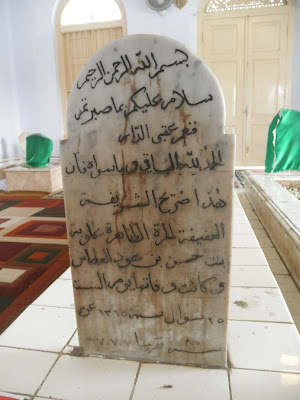 بسم الله الرحمن الرحيم
سلام عليكم بما صبرتم
فنعم عقبى الدار
الحمد لله الباقي وما سواه فان
هذا ضريح الشريفة
العفيفة الحرة الطاهرة علوية
بنت حسن بن العطاس
وكانت وفاتها يوم السبت
٢٥ شوال سنه ١٣٦٥ عن
سنة تقريبا